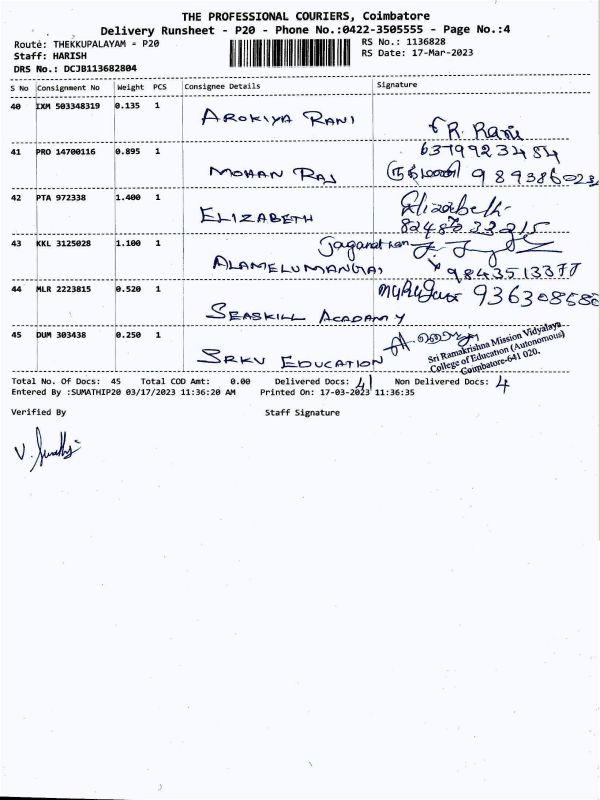 THE PROFESSIONAL COURIERS, Coimbatore
Delivery Runsheet - P20 - Phone No.:0422-3505555 - Page No.:4
Route: THEKKUPALAYAM - P20 RS No.: 1136828
Staff: HARISH RS Date: 17-Mar-2023
DRS No.: DCJB113682804
S No Consignment No Weight PCS Consignee Details Signature
40 IXM 503348319 0.135 1 AROKIYA RANI R. Rani
6379923484
41 PRO 14700116 0.895 1 MOHAN RAJ
42 PTA 972338 1.400 1 ELIZABETH Elizabeth
43 KKL 3125028 1.100 1 ALAMELUMANGAI Jaganathan
9843513377
44 MLR 2223815 0.520 1 SEASKILL ACADAMY
45 DUM 303438 0.250 1 SRKV EDUCATION
Sri Ramakrishna Mission Vidyalaya
College of Education (Autonomous)
Coimbatore-641 020.
Total No. Of Docs: 45 Total COD Amt: 0.00 Delivered Docs: 41 Non Delivered Docs: 4
Entered By :SUMATHIP20 03/17/2023 11:36:20 AM Printed On: 17-03-2023 11:36:35
Verified By Staff Signature
V. Sumathi